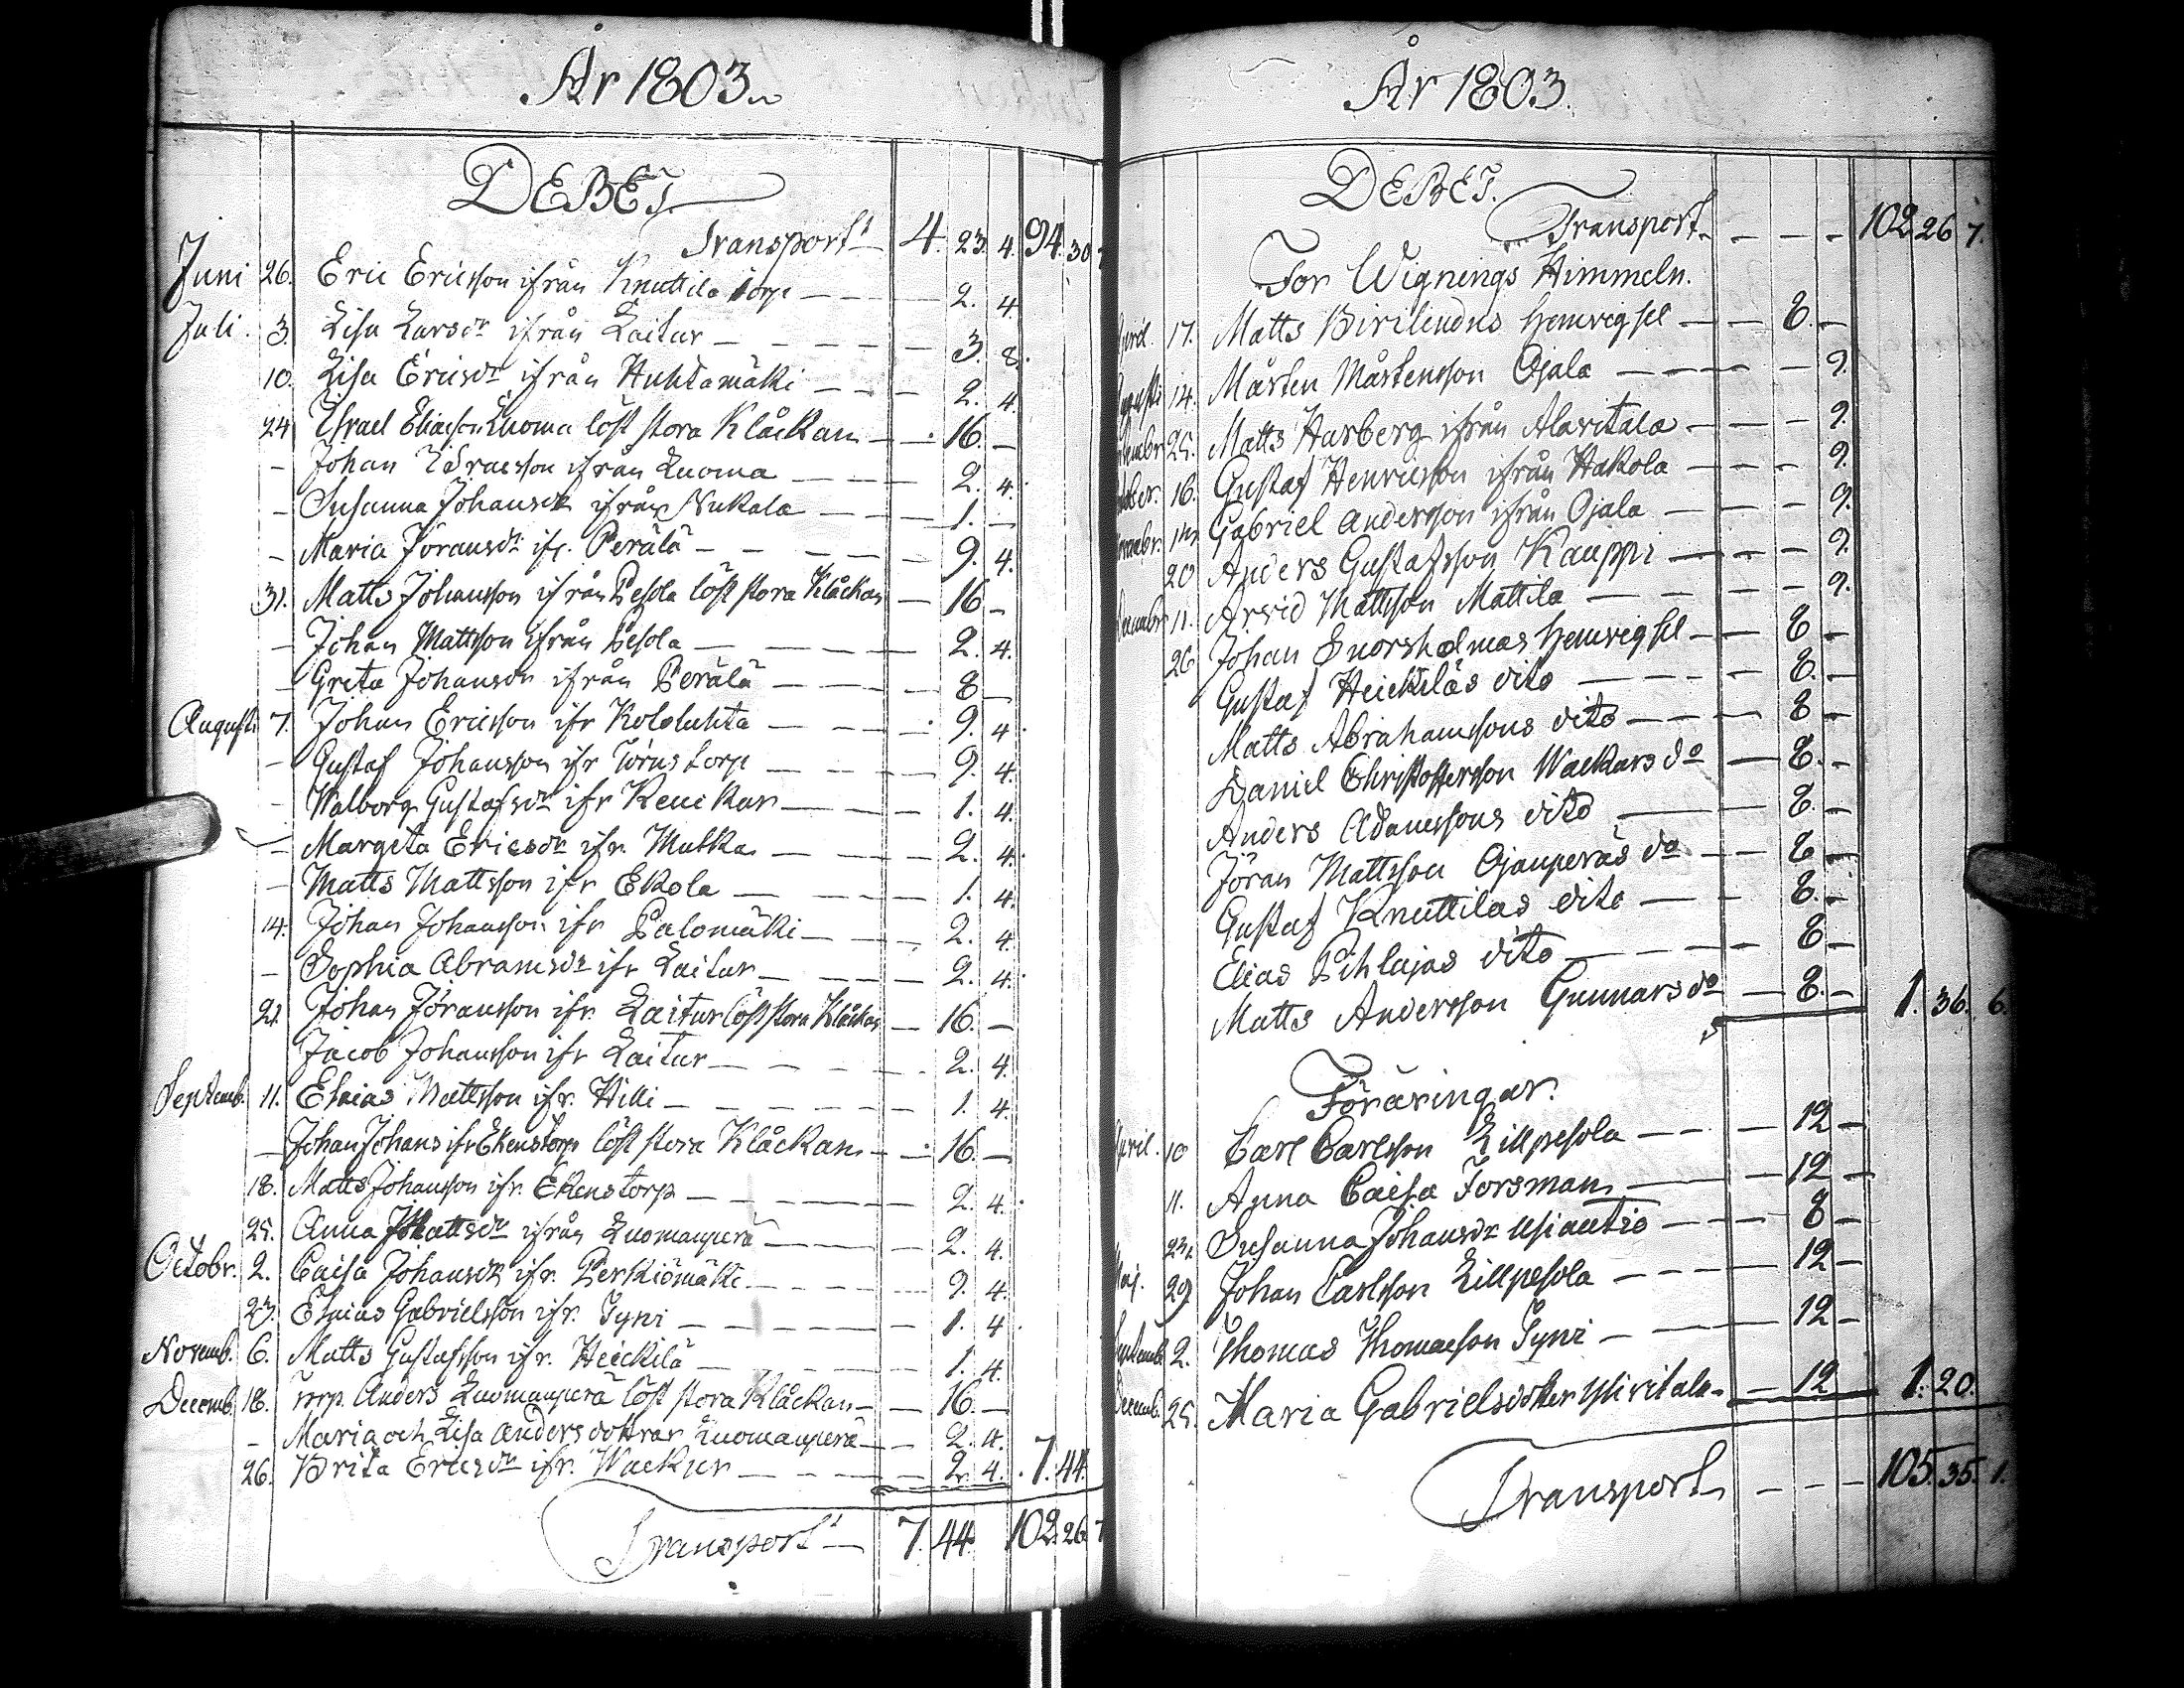 År 1803.
DEBET.
Transport 4. 23. 4. 94. 30
Juni 26. Eric Ericsson ifrån Knuttila torp — 2. 4.
Juli. 3. Lisa Larsdr ifrån Laitur — 3. 8.
10. Lisa Ericsdr ifrån Huhtamäki — 2. 4.
24. Israel Eliaeson Luoma löst stora Klåckan — 16. —
— Johan Israelsson ifrån Luoma — 2. 4.
— Susanna Johansdr ifrån Nukala — 1. —
— Maria Joransdr ifr. Perälä — 9. 4.
31. Matts Johansson ifrån Pesola löst stora Klåckan — 16 —
— Johan Mattsson ifrån Pesola — 2. 4.
— Greta Johansdr ifrån Perälä — 8 —
Augusti 7. Johan Ericsson ifr Kololuhta — 9. 4.
— Gustaf Johansson ifr Törnstorp — 9. 4.
— Walborg Gustafsdr ifr Kecickar — 1. 4.
— Margeta Ericsdr ifr. Mutka — 2. 4.
— Matts Mattsson ifr Ekola — 1. 4.
14. Johan Johansson ifr Palomäki — 2. 4.
— Sophia Abramsdr ifr Laitur — 2. 4.
21. Johan Jöransson ifr. Laitur löst stora Klåckan — 16. —
Jacob Johansson ifr Laitur — 2. 4.
Septemb. 11. Esaias Mattsson ifr. Hilli — 1. 4.
— Johan Johans ifr Ekenstorp löst stora Klåckan — 16. —
18. Matts Johansson ifr. Ekenstorp — 2. 4.
25. Anna Mattsdr ifrån Luomanperä — 2. 4.
Octobr. 2. Caisa Johansdr ifr. Perkiömäki — 9. 4.
23. Esaias Gabrielsson ifr. Tyni — 1. 4.
Novemb. 6. Matts Gustafsson ifr. Heickilä — 1. 4.
Decemb. 18. Torp. Anders Luomanperä löst stora Klåckan — 16. —
— Maria och Lisa Anders döttrar Luomanperä — 2. 4.
26. Brita Ericsdr ifr. Wackur — 2. 4. 7. 44.
Transport — 7. 44. 102. 26. 7
År 1803.
DEBET.
Transport — 102 26 7.
For Wignings Himmeln.
April. 17. Matts Birilindus hemvigsel — 8. —
Augusti 14. Mårten Mårtensson Ojala — 9.
25. Matts Harberg ifrån Alavitala — 9.
16. Gustaf Henricsson ifrån Hakola — 9.
Gabriel Andersson ifrån Ojala — 9.
20 Anders Gustafsson Kauppi — 9.
11. Arvid Mattsson Mattila — 9.
26 Johan Snorsholmas hemvigsel — 8 —
Gustaf Heickiläs dito — 8. —
Matts Abrahamsons dito — 8 —
Daniel Christoffersson Wackars do — 8. —
Anders Adamssons dito — 8. —
Jöran Mattsson Ojanperäs do — 8 —
Gustaf Knuttilas dito — 8. —
Elias Pihlajas dito — 8 —
Matts Andersson Gunnars do — 8. — 1. 36. 6.
Föräringar.
April. 10 Carl Carlsson Lillpesola — 12 —
11. Anna Caisa Forsman — 12 —
Susanna Johansdr Usiautio — 8 —
Maj. 29 Johan Carlsson Lillpesola — 12 —
Septemb. 2. Thomas Thomaeson Tyni — 12 —
Decemb. 25. Maria Gabrielsdotter Yliritala — 12 1. 20.
Transport — 105. 35. 1.